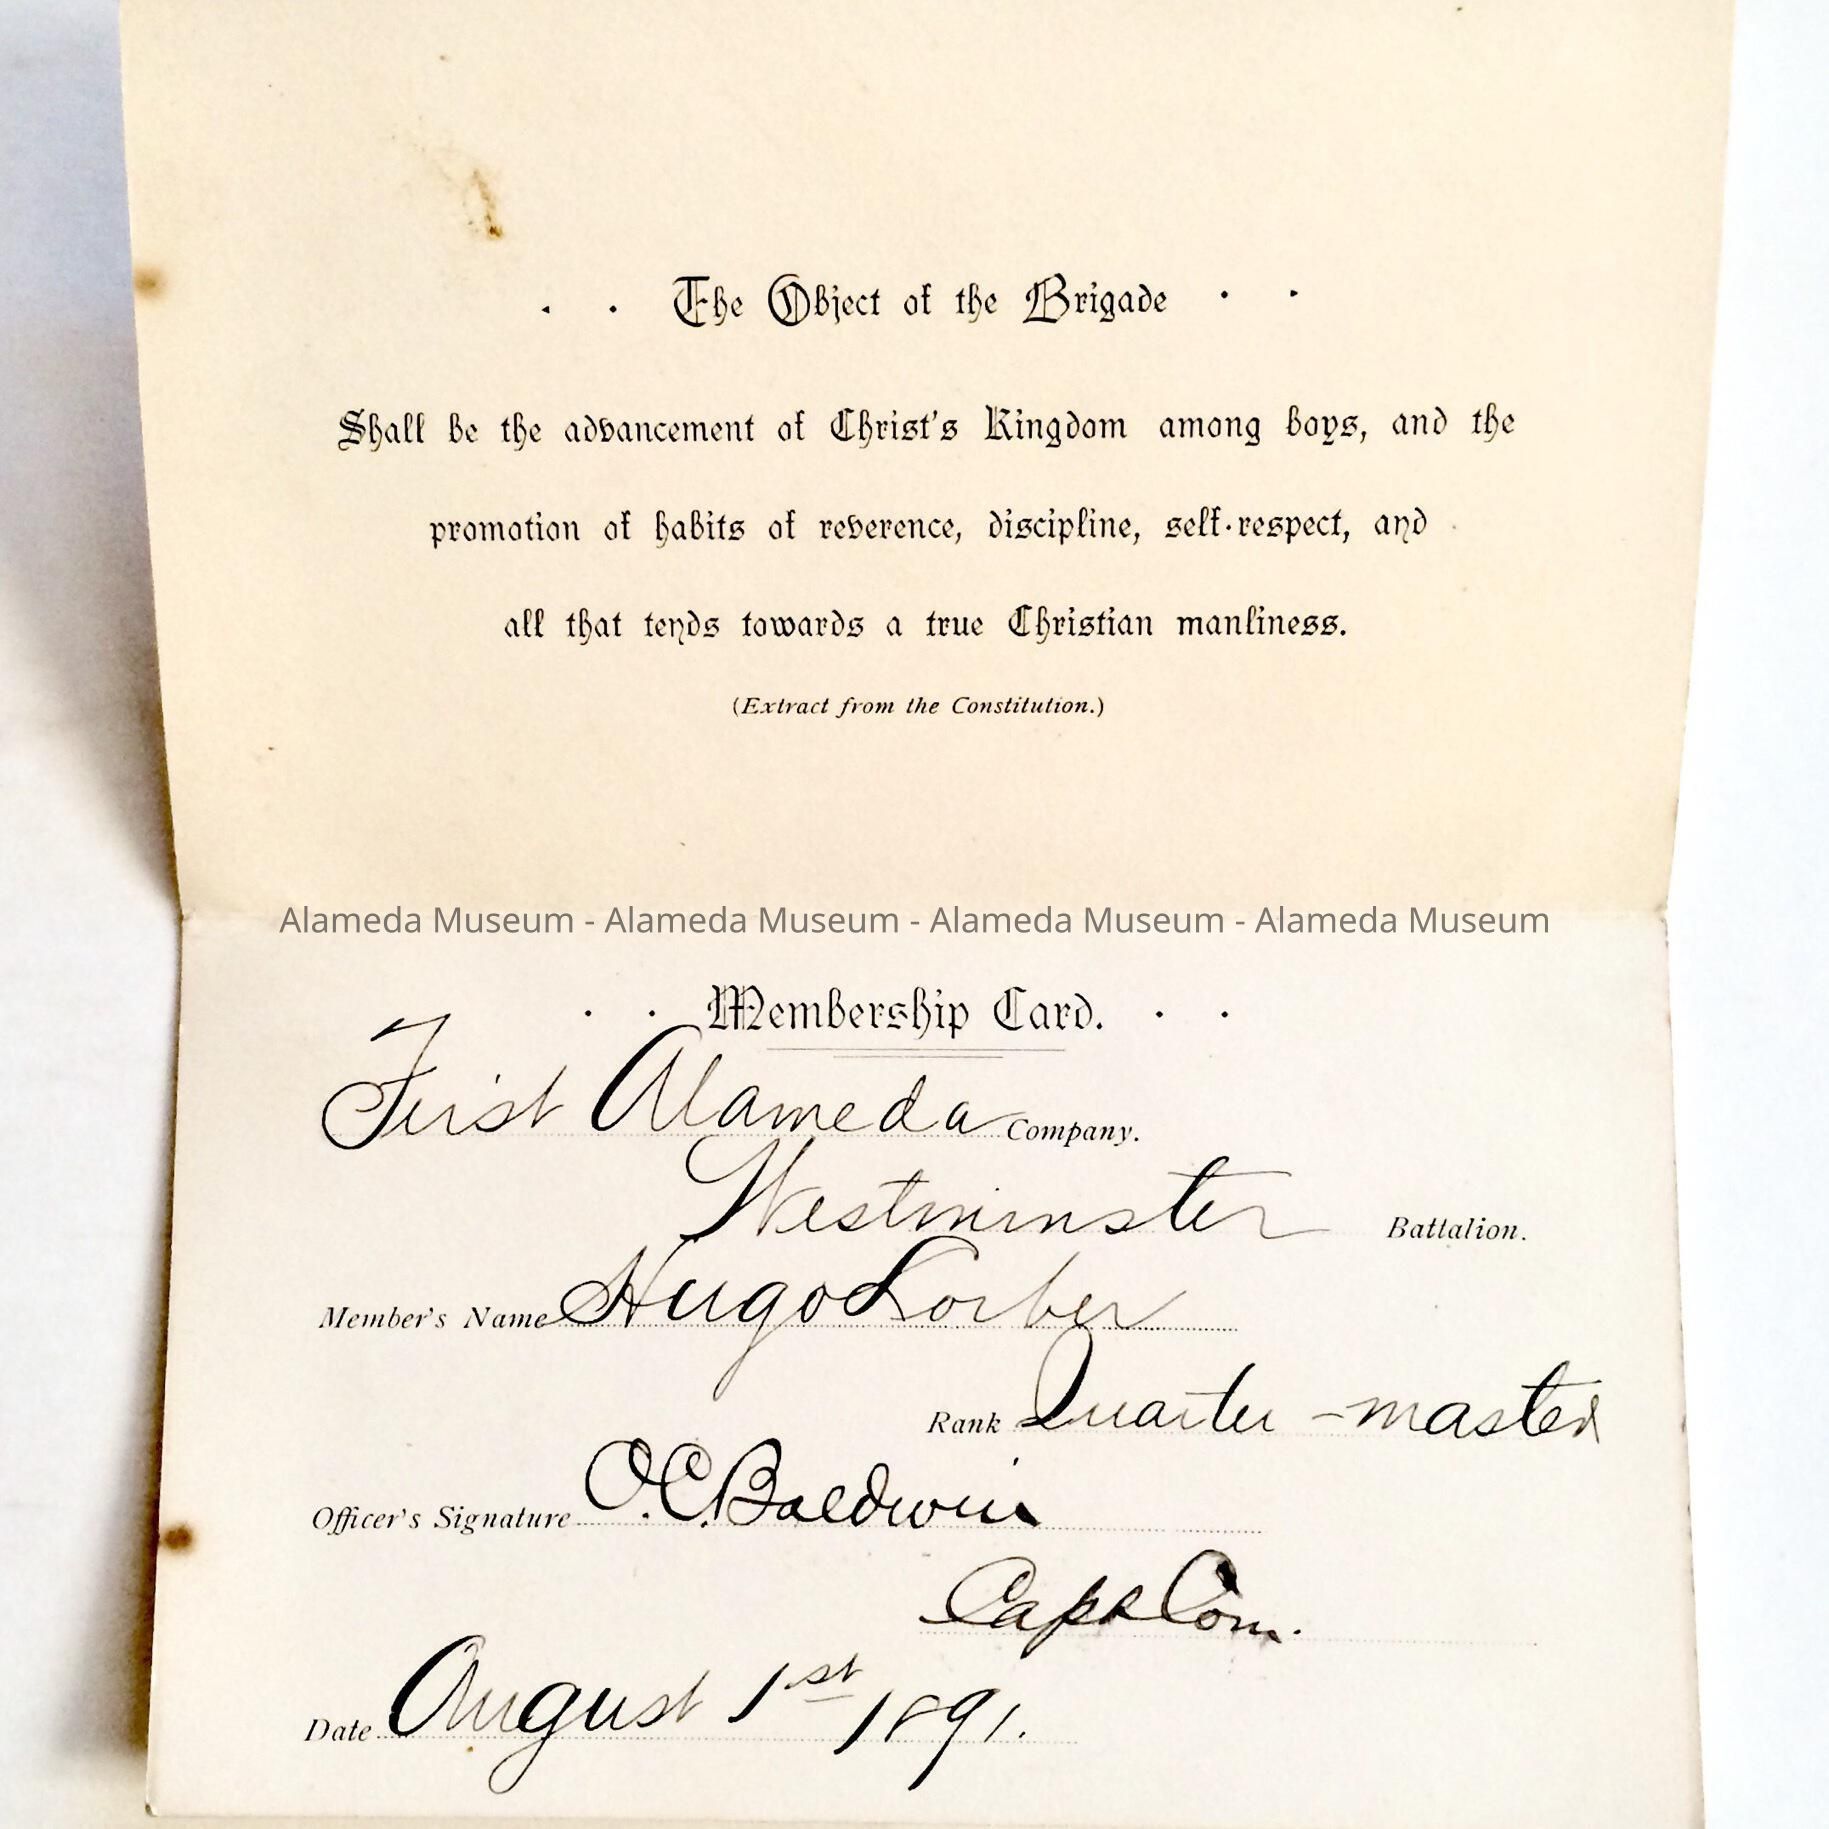 The Object of the Brigade
Shall be the advancement of Christ's Kingdom among boys, and the
promotion of habits of reverence, discipline, self-respect, and
all that tends towards a true Christian manliness.
(Extract from the Constitution.)
Alameda Museum - Alameda Museum - Alameda Museum - Alameda Museum
Membership Card.
First Alameda Company.
Westminster Battalion.
Member's Name Hugo Lorber
Rank Quarter-master
Officer's Signature O.C. Baldwin
Capt Com.
Date August 1st 1891.